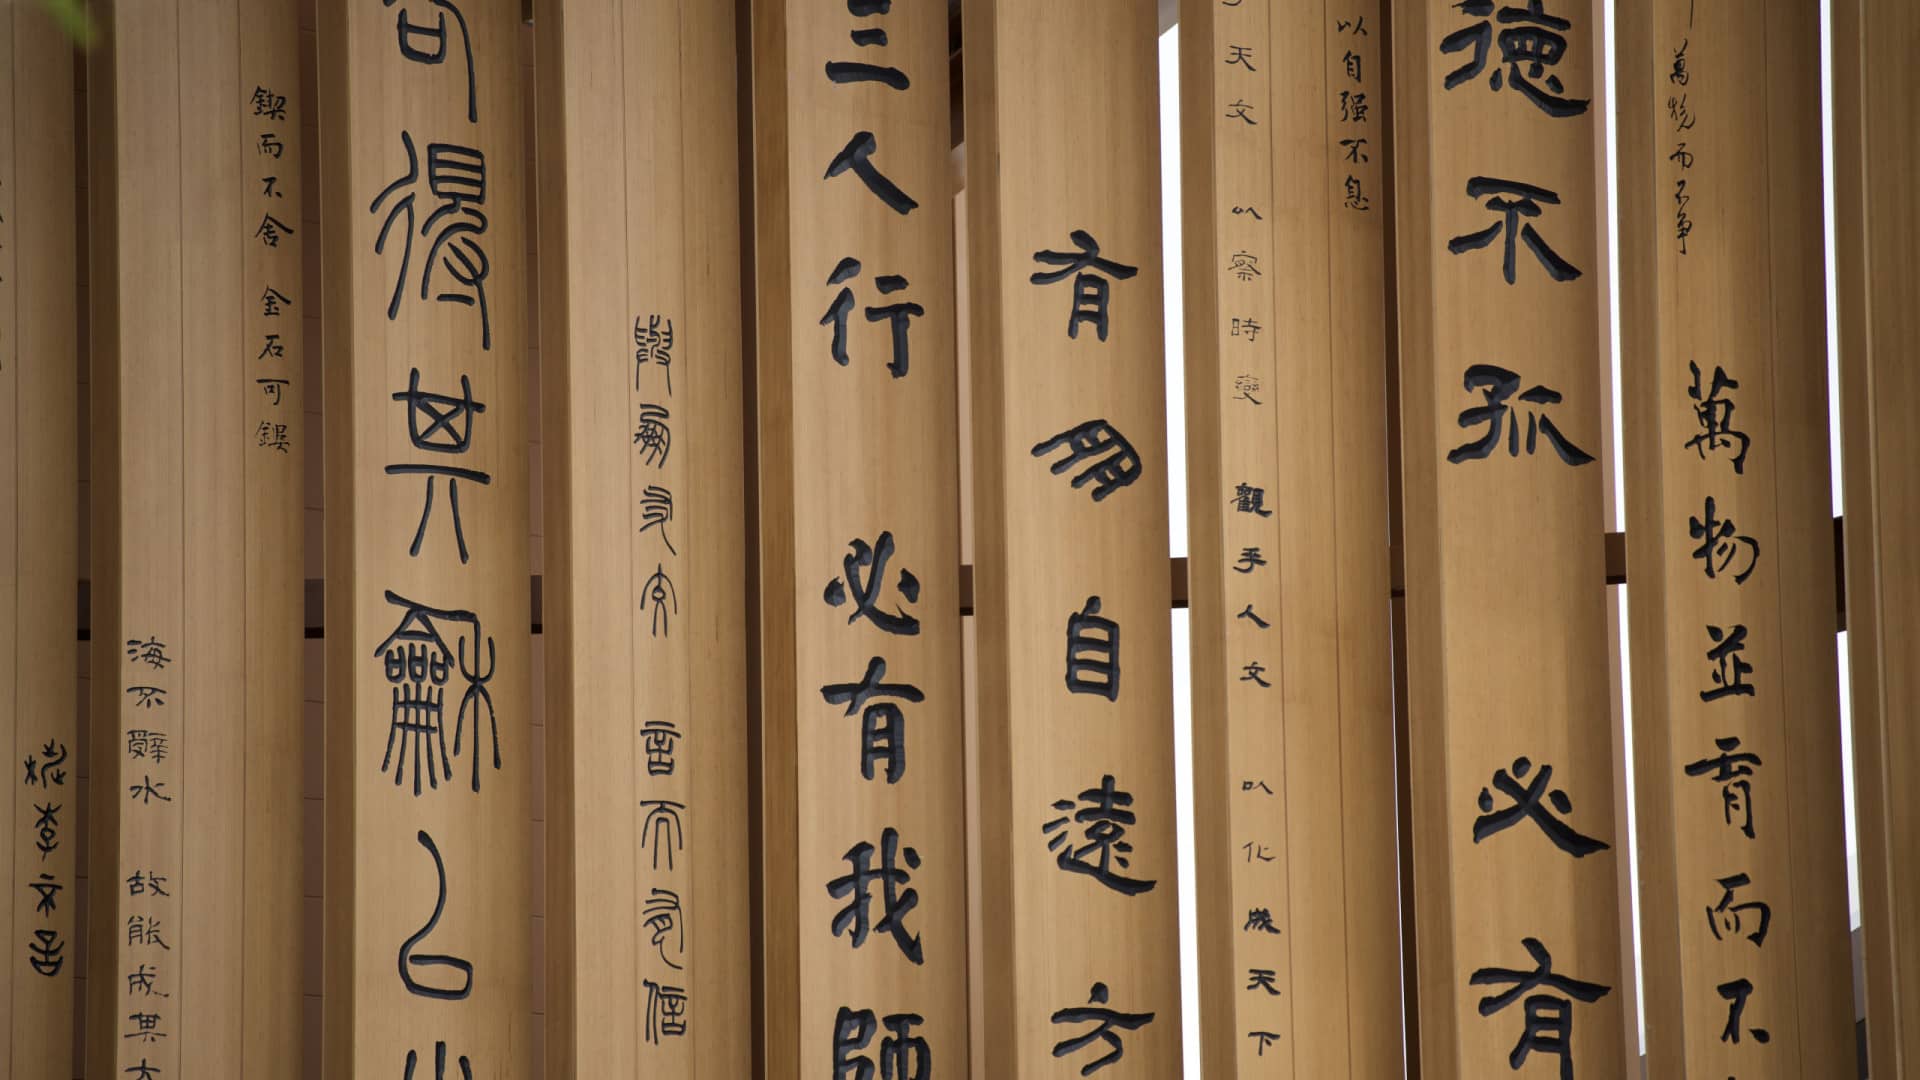 萬物並育而不
萬物而不爭
德不孤 必有
以自强不息
天文 以察時變 觀乎人文 以化成天下
有朋自遠方
三人行 必有我師
與朋友交 言而有信
得其龢以
鍥而不舍 金石可鏤
海不辭水 故能成其大
桃李不言